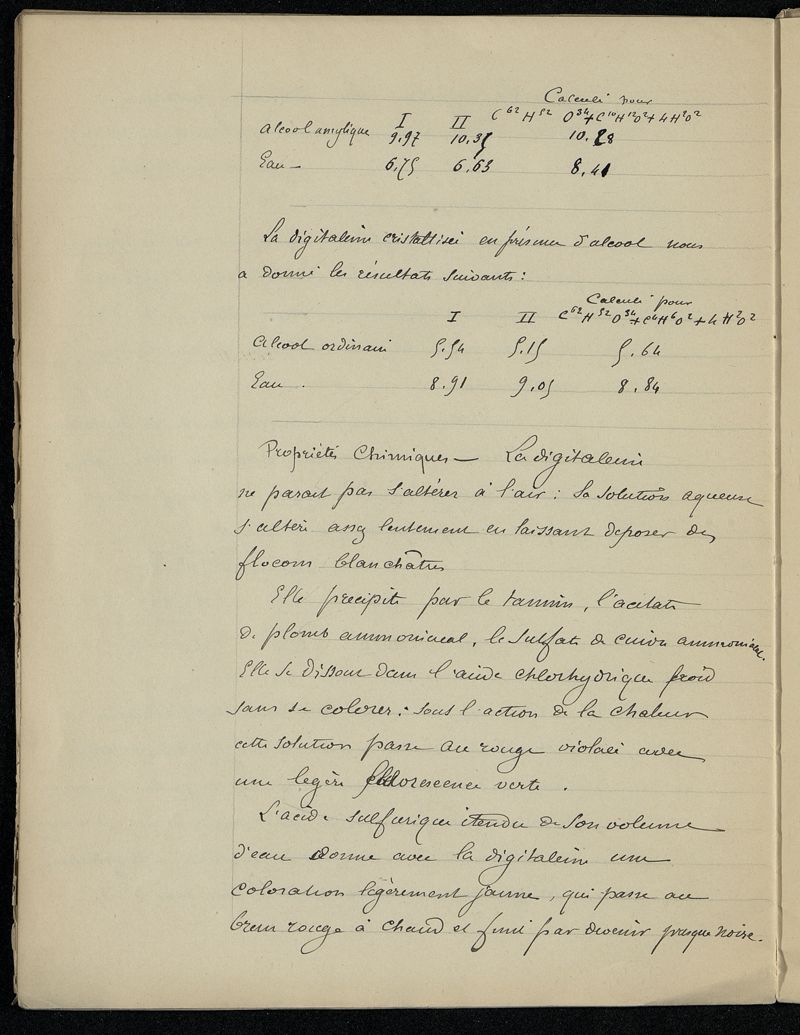 Calculé pour
I II C⁶²H⁵²O³⁴+C¹⁰H¹²O²+4H²O²
Alcool amylique 9.97 10.35 10.28
Eau — 6.75 6.63 8.41
La digitaleine cristallisée en présence d'alcool nous
a donné les résultats suivants :
Calculé pour
I II C⁶²H⁵²O³⁴+C⁴H⁶O²+4H²O²
Alcool ordinaire 5.54 5.15 5.64
Eau . 8.91 9.05 8.84
Propriétés Chimiques — La digitaleine
ne parait pas s'altérer à l'air : Sa solution aqueuse
s'altère assez lentement en laissant déposer des
flocons blanchâtres
Elle précipite par le tannin, l'acétate
de plomb ammoniacal, le sulfate de cuivre ammoniacal.
Elle se dissout dans l'acide chlorhydrique froid
sans se colorer : sous l'action de la chaleur
cette solution passe au rouge violacé avec
une légère fluorescence verte .
L'acide sulfurique étendu de son volume
d'eau donne avec la digitaleine une
coloration légèrement jaune, qui passe au
brun rouge à chaud et finit par devenir presque noire.